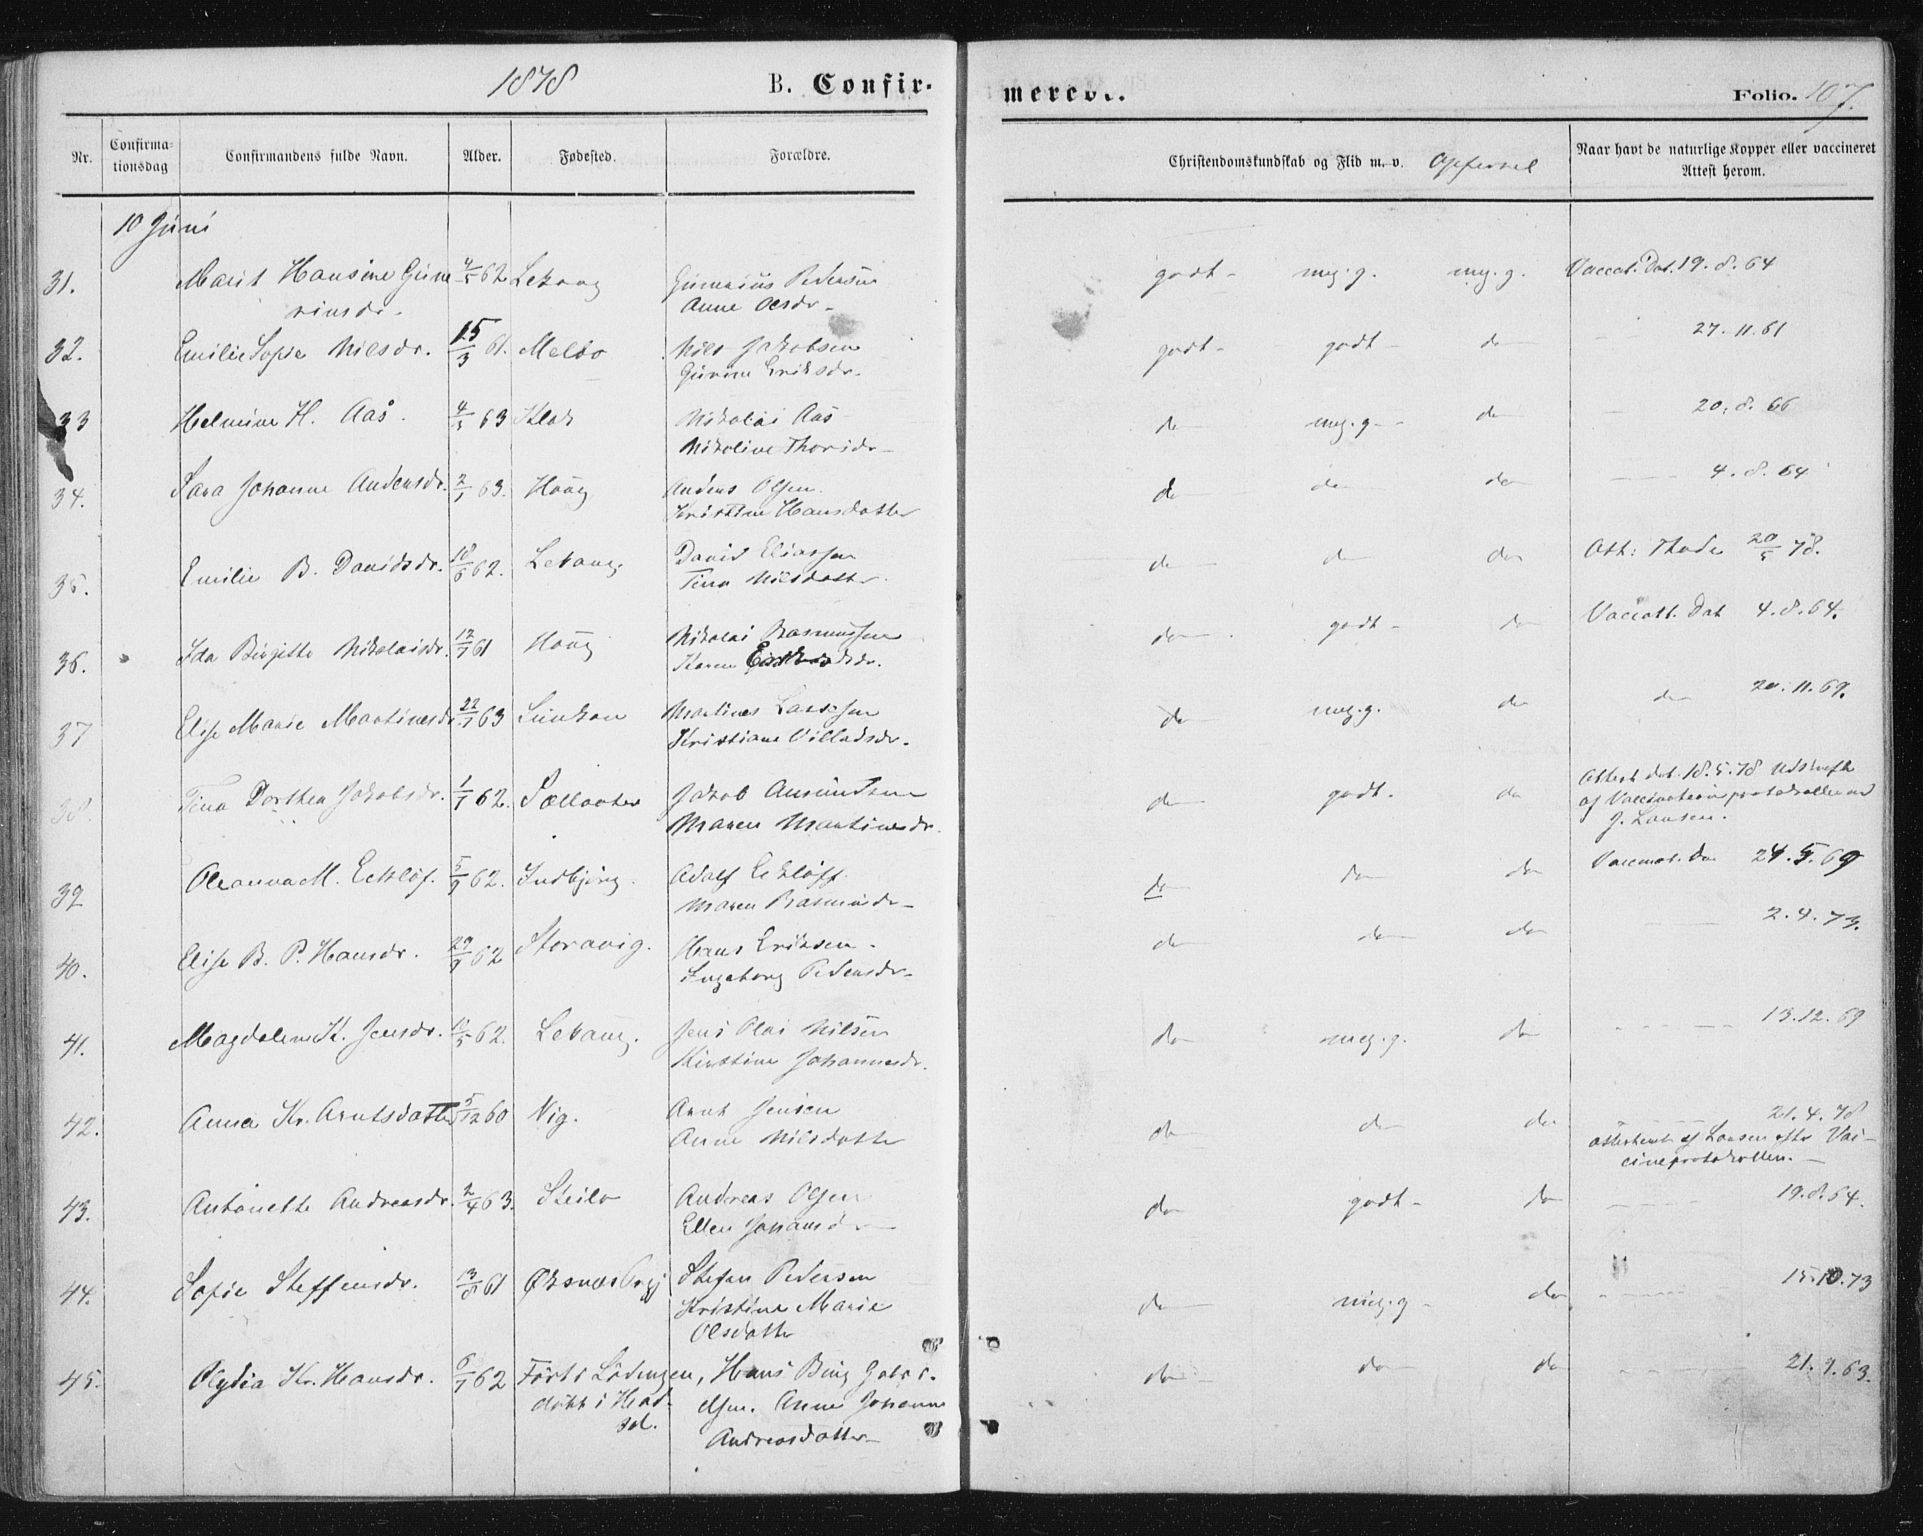 1878 B. Confir- mere... Folio. 107.
Nr. Confirma-tionsdag Confirmandens fulde Navn. Alder. Fødested. Forældre. Christendomskundskab og Flid m. v. Opførsel Naar havt de naturlige Kopper eller vaccineret Attest herom.
10 Juni
31. Marit Hansine 62 Lekang Pedersen godt - meg. g. meg. g. Vaccat. Dat. 19. 8. 64
rinsdr. Anne Olsdr -
32. Emilie Sofie Nilsdr. 15/3 61. Melbo Nils Jakobsen godt - godt - do 27. 11. 61
Eriksdr.
33 Helmine H. Aas. 63 Nikolai Aas do meg. g - do 20. 8. 66
Nikoline Thorsdr -
34. Sara Johanne Andersdr. 2/1 63. Haug Anders Olsen do do do 4. 8. 64
Kristine Hansdatter
35. Emilie B. Davidsdr. 18/6 62. Lekang. David Eliassen do do do Att: Thode 20/5 78.
Tina Nilsdatter.
36. Ida Birgitte Nikolaisdr. 12/7 61 Haug Nikolai Rasmussen do godt - do Vaccatt. Dat 4. 8. 64.
Karen
37 Elise Marie Martinusdr 63 Martinus Larssen do meg. g. do do 20. 11. 69.
Kristiane Villadsdr.
38. Tina Dorthea Jakobsdr. 1/7 62. Sællæter Jakob Amundsen do godt. do Attest dat. 18. 5. 78 Udskrift
Maren Martinusdr. af Vaccinationsprotokollen ved
J. Lansen.
39 Oleanna M. Ecklöf. 5/9 62. Indbjörg. Adolf Ecklöff. do do do Vaccinat. do 24. 5. 69
Maren Rasmusdr -
40. Elise B. P. Hansdr. 29/9 62 Hans Eriksen. do do do 2. 4. 73.
Ingeborg Pedersdr -
41. Magdalene K. Jensdr. 62. Lekang. Jens Olai Nilsen do meg. g. do 13. 12. 69
Kirstine Johannesdr.
42. Anna Kr. Arntsdatter 5/12 60 Vig. Arnt Jensen do do do 21. 4. 78
Anne Nilsdatter af Lansen efter Vac-
cineprotokollen. -
43. Antonette Andreasdr. 2/4 63. Steilo Andreas Olsen do godt - do 19. 8. 64.
Ellen
44. Sofie Steffensdr. 13/8 61 Øksnæs Prgj Stefan Pedersen do meg. g - do 15. 10. 73
Kristine Marie
Olsdatter
45. Olydia Kr. Hansdr. 6/1 62 Født i Lödingen, Hans Bing Gabri- do do do 21. 9. 63.
döbt i Had- elsen. Anne Johanne
sel. Andreasdatter -